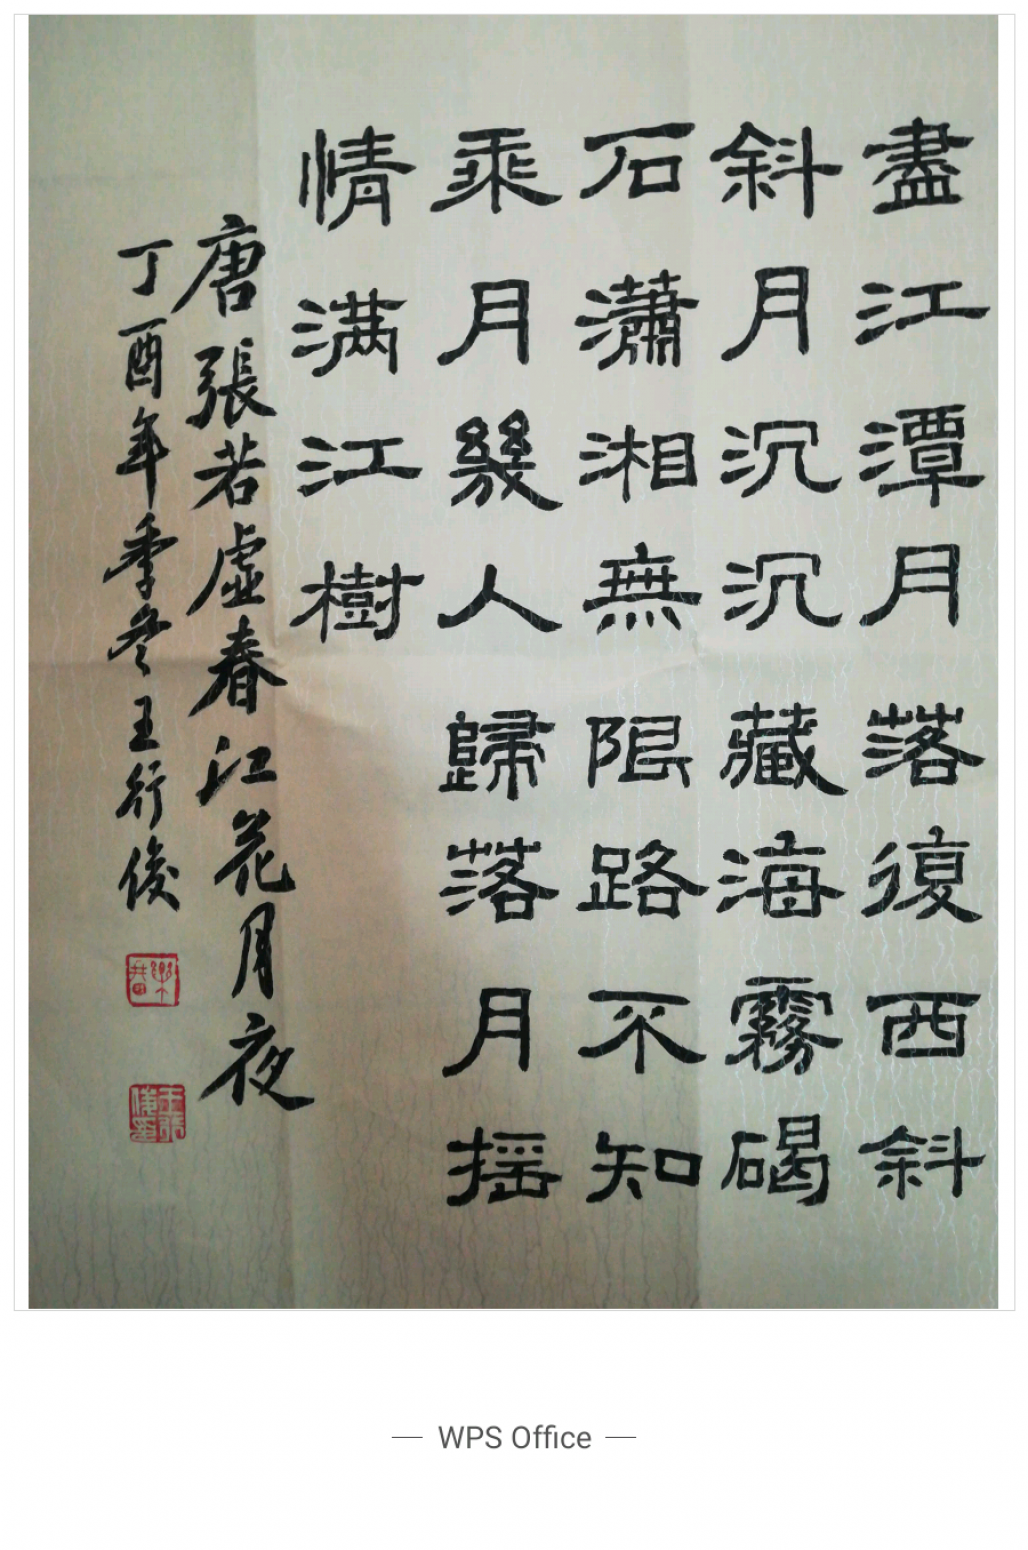 盡江潭月落復西斜
斜月沉沉藏海霧碣
石瀟湘無限路不知
乘月幾人歸落月摇
情满江樹
唐張若虛春江花月夜
丁酉年季冬王行俊
WPS Office